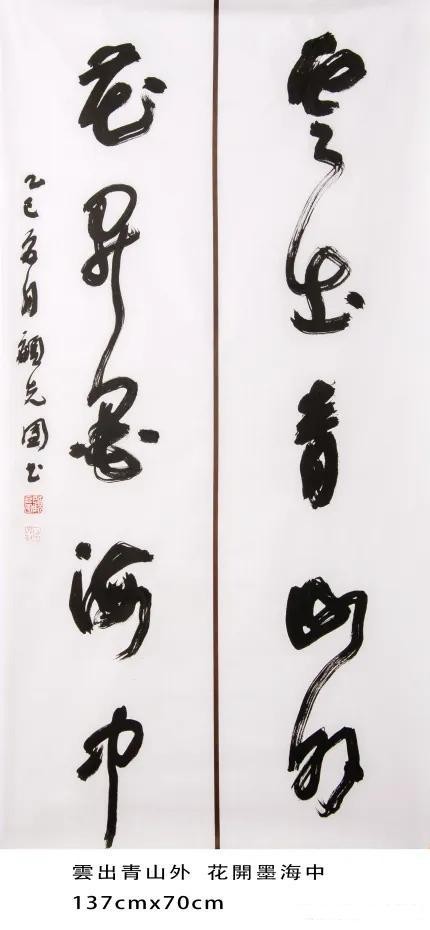 雲出青山外
花開墨海中
乙巳
月顧先國書
雲出青山外 花開墨海中
137cmx70cm